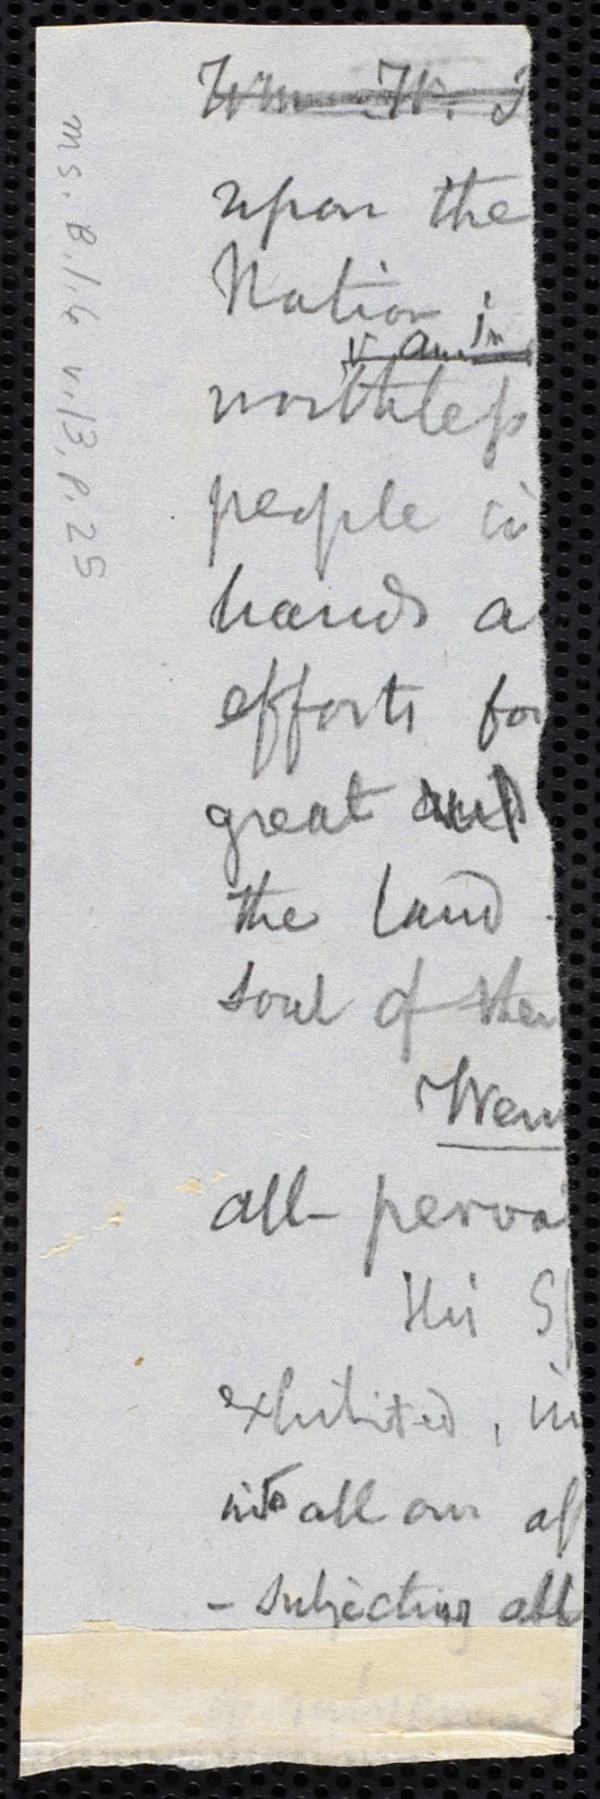 Wm. W.
upon the
Nation
in
worthless
people in
hands a
efforts for
great and
the land
soul of the
all-perva
His Sp
exhibited, in
into all our aff
- subjecting all
ms. B.1.6 v.13, p.25